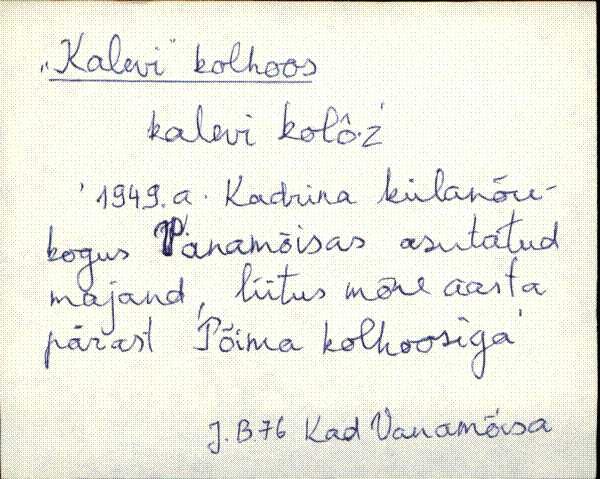 „Kalevi" kolhoos
kalevi kolô·ź
'1949. a. Kadrina külanõu-
kogus Vanamõisas asutatud
majand, liitus mõne aasta
pärast Põima kolhoosiga'
J. B. 76 Kad Vanamõisa